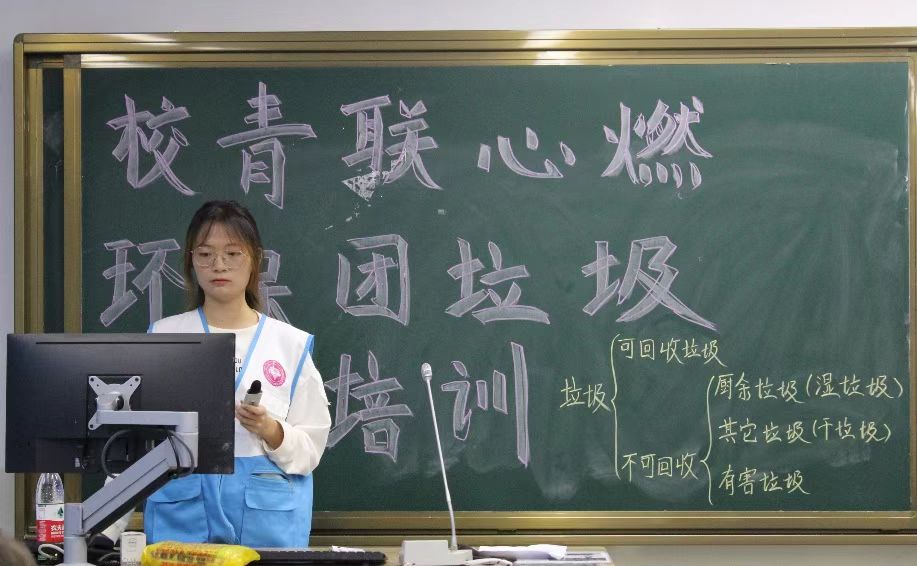 校青联心燃
环保团垃圾
培训
垃圾
可回收垃圾
不可回收
厨余垃圾(湿垃圾)
其它垃圾(干垃圾)
有害垃圾